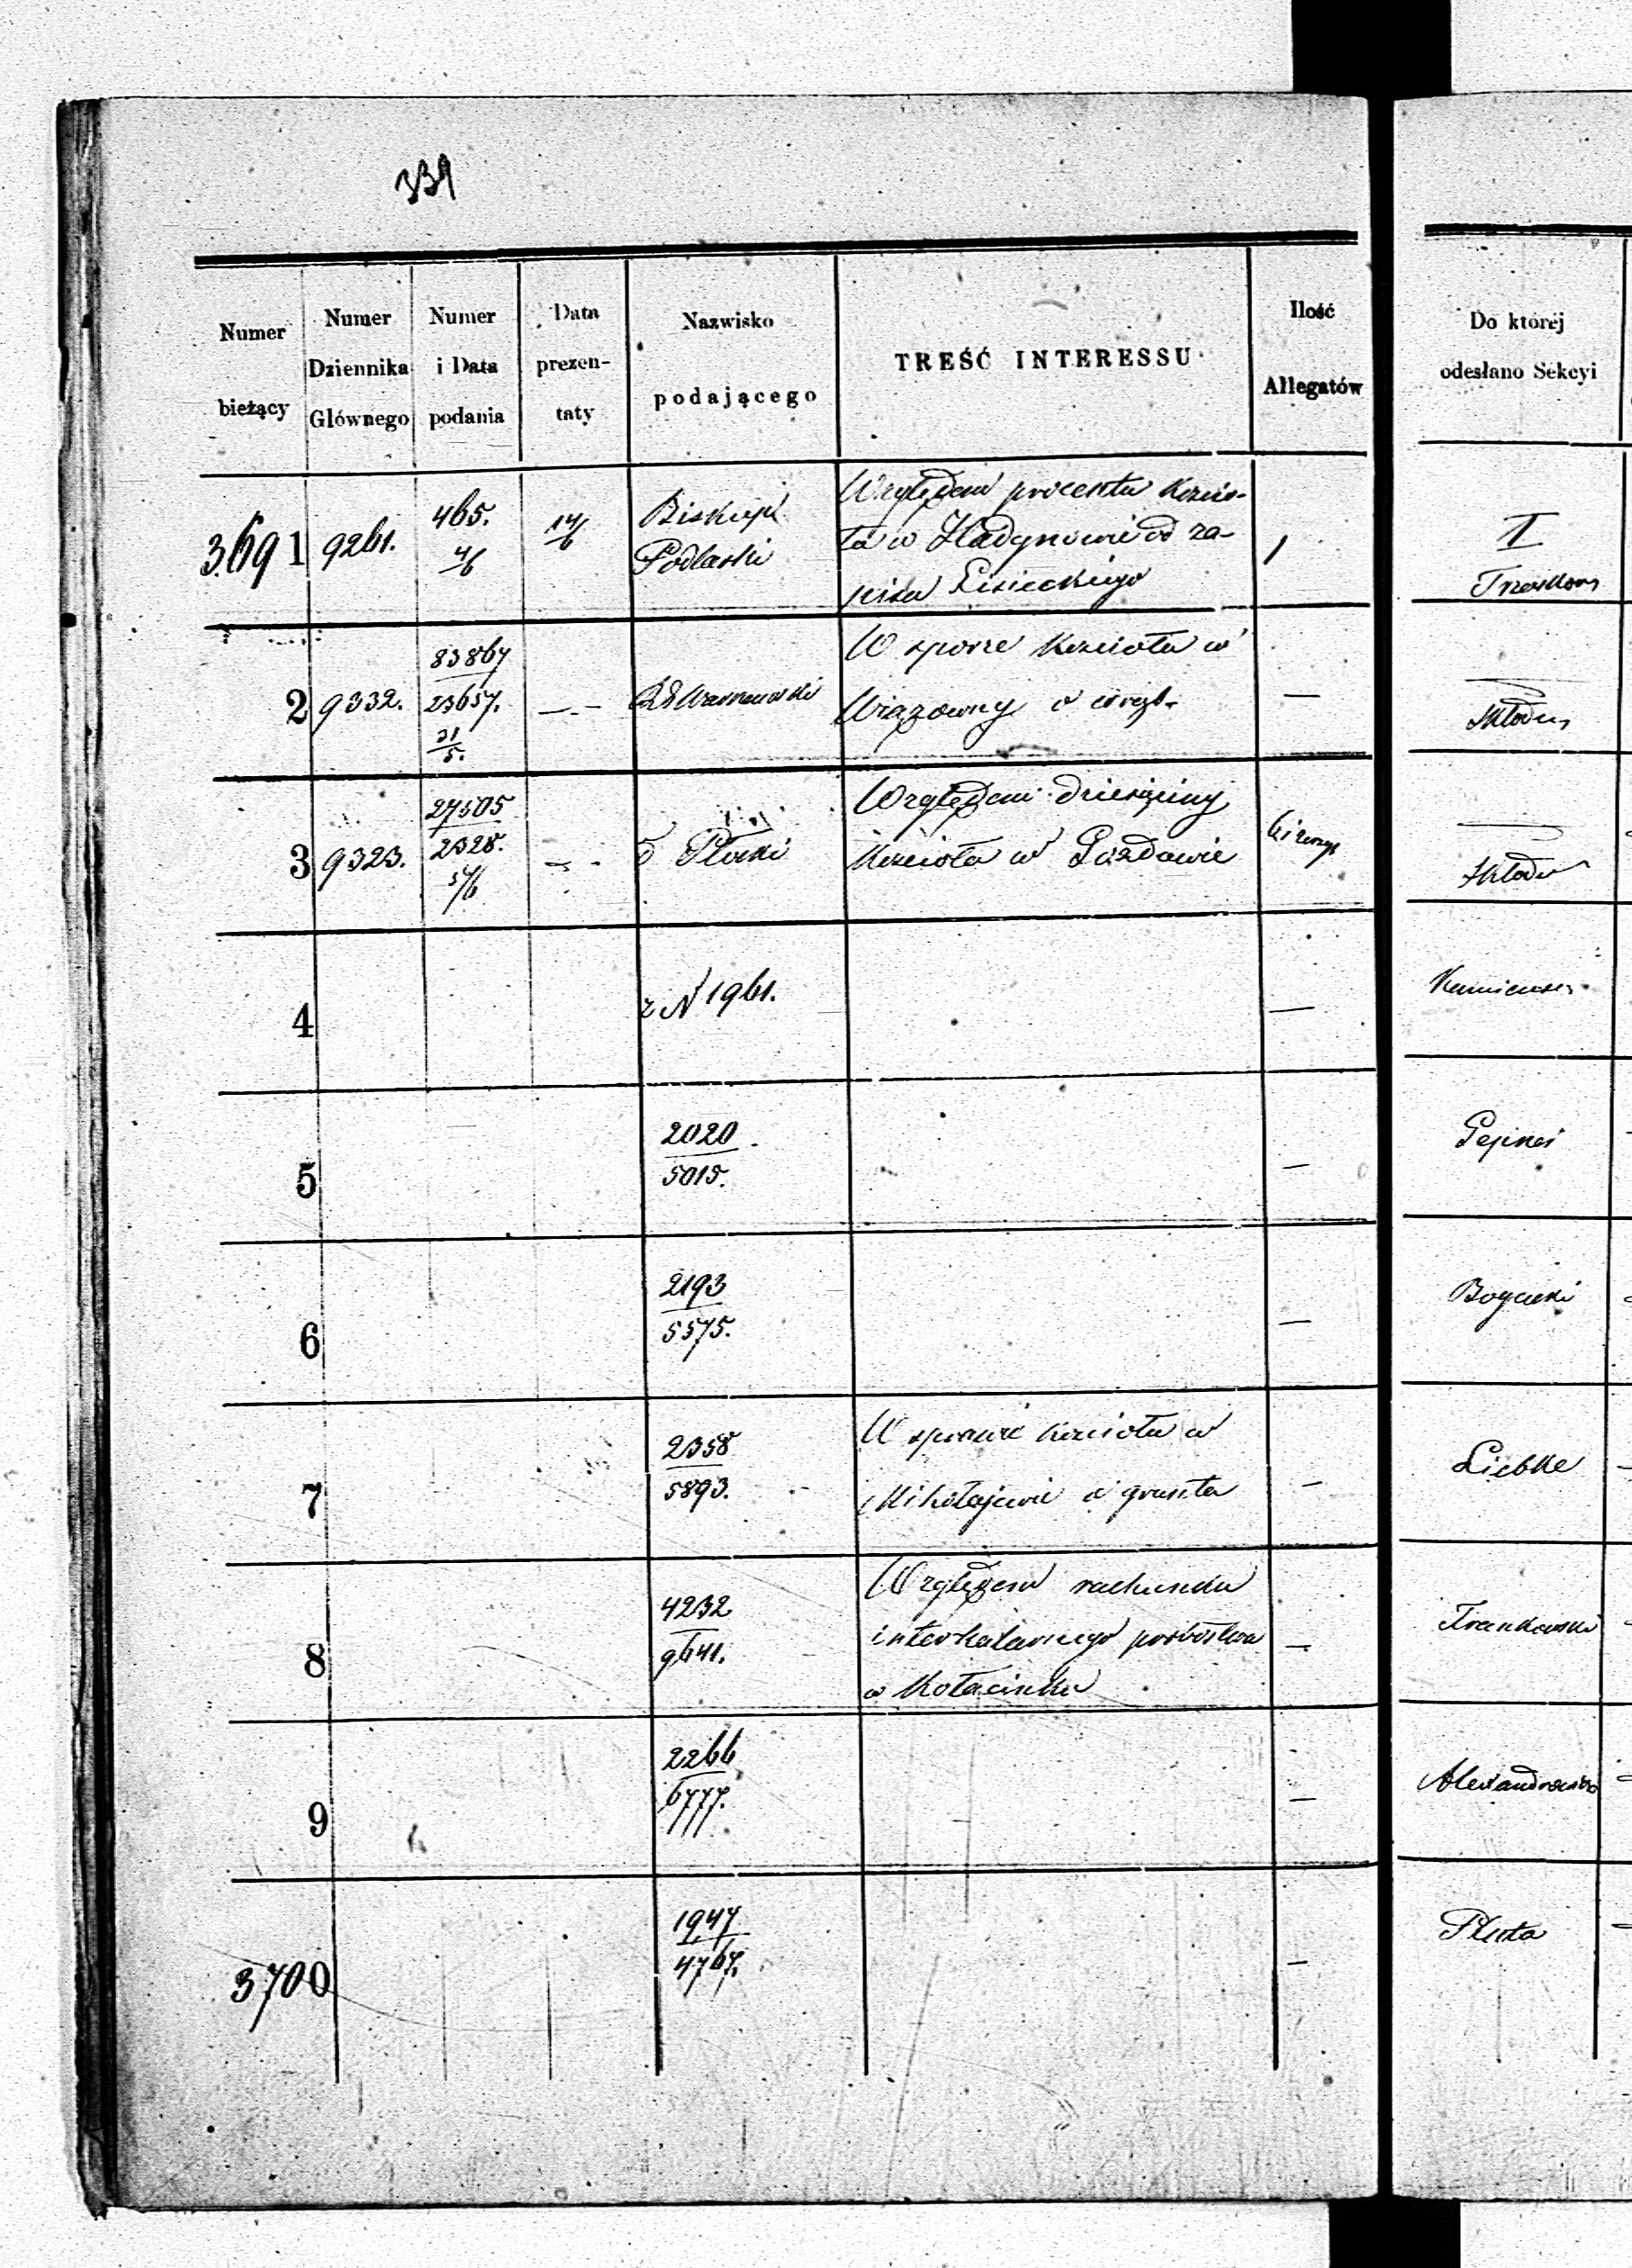 339
Numer bieżący
Numer Dziennika Głównego
Numer i Data podania
Data prezen-taty
Nazwisko podającego
TREŚĆ INTERESSU
Ilość Allegatów
Do której odesłano Sekcyi
3691 9261. 465. 4/6 14/6 Biskup Podlaski
Względem procentu kościo-
ła w Hadynowie od za-
pisu Lisieckiego
1
II
2 9332. 83867 23657. 31/5. — R G Warszawski
W sporze kościoła w
Wiązowny o wręb.
—
3 9323. 27505 2328. 5/6 — d Płocki
Względem dziesięciny
kościoła w Gozdowie
4 z N 1961. —
5 2020 5015. —
6 2193 5575. —
Bogucki
7 2358 5893.
W sporze kościoła w
Mikołajewie o grunta
—
Liebke
8 4232 9641.
Względem rachunku
interkalarnego probostwa
w Kołacinku
—
Frankowski
9 2266 6777. —
3700 1947 4767. —
Pluta